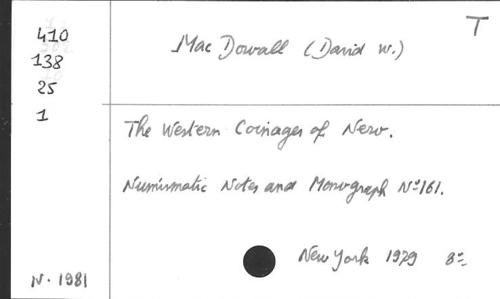 T
410
138
25
1
Mac Dowall (David W.)
The Western Coinages of Nero.
Numismatic Notes and Monograph Nº 161.
New York 1979 8º
N. 1981